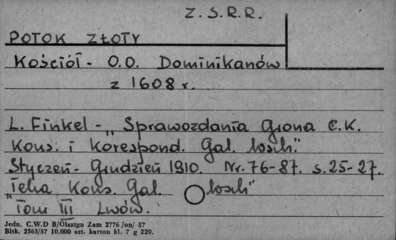 Z.S.R.R.
POTOK ZŁOTY
Kościół - O.O. Dominikanów
z 1608 r.
L. Finkel - „Sprawozdania Grona C.K.
Kons. i Korespond. Gal. wsch."
Styczeń - Grudzień 1910. Nr. 76-87. s. 25-27.
Teka Kons. Gal. wsch."
"Tom III Lwów.
Jedn. C.W.D R/Olsztyn Zam 2776 /on/ 57
Blok. 2563/57 10.000 szt. karton kl. 7 g 220.